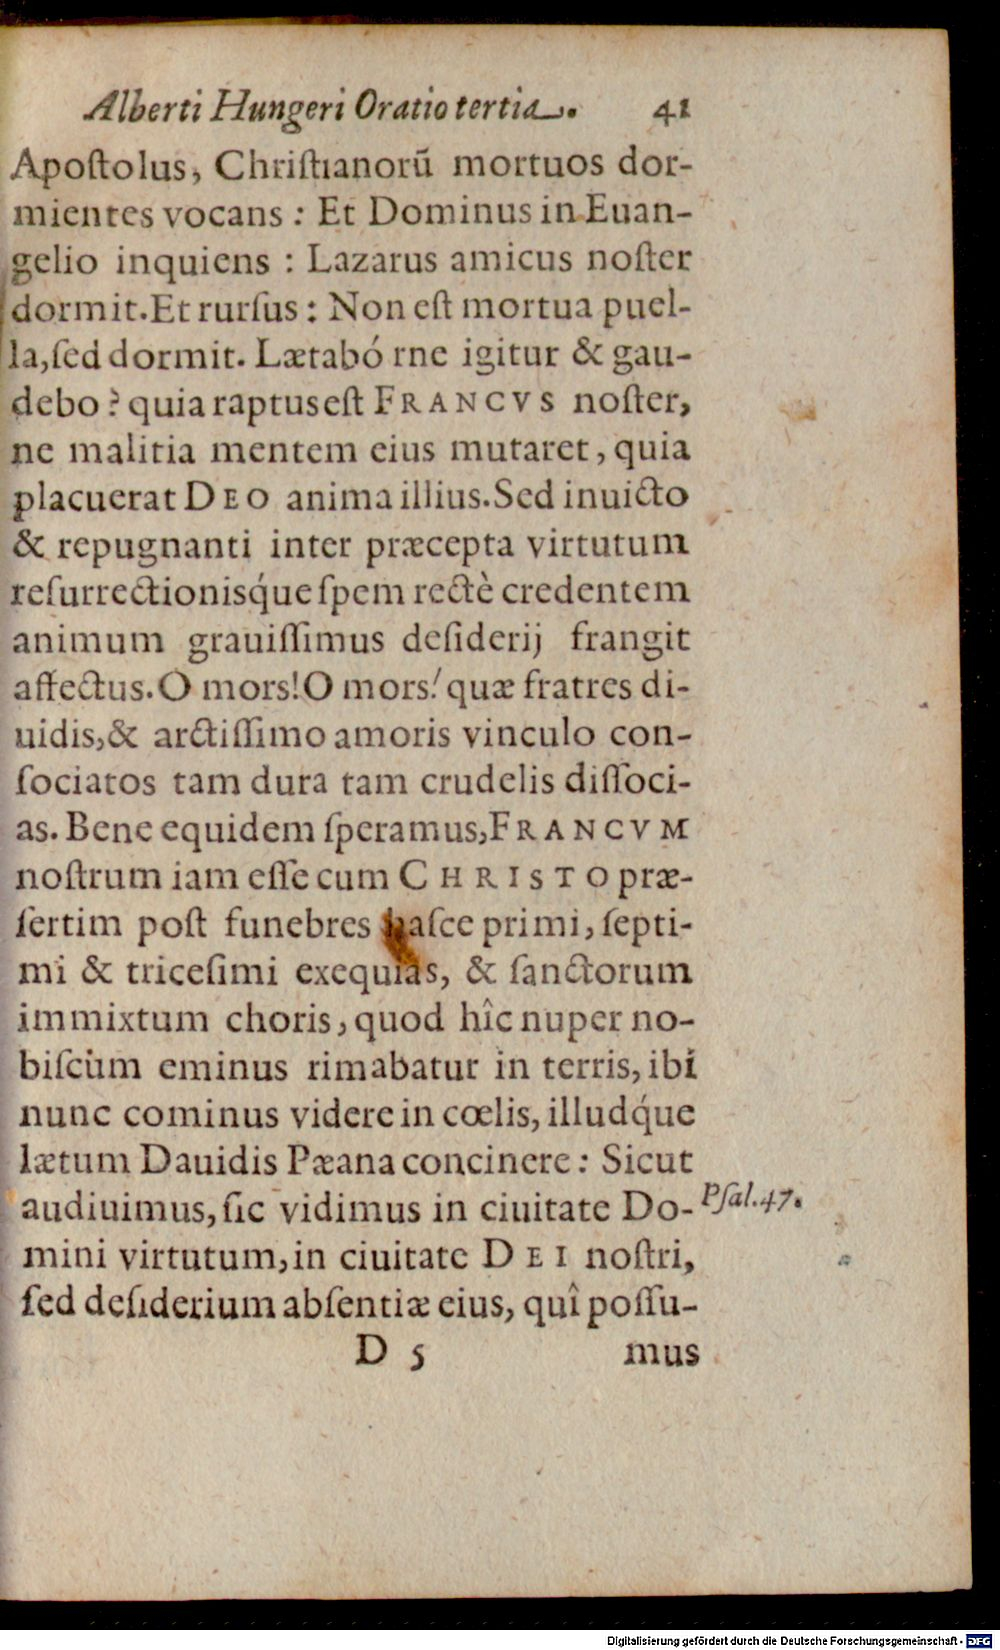 Alberti Hungeri Oratio tertia. 41
Apoſtolus, Chriſtianorũ mortuos dor-
mientes vocans : Et Dominus in Euan-
gelio inquiens : Lazarus amicus noſter
dormit. Et rurſus : Non eſt mortua puel-
la, ſed dormit. Lætabó rne igitur & gau-
debo ? quia raptus eſt FRANCVS noſter,
ne malitia mentem eius mutaret, quia
placuerat DEO anima illius. Sed inuicto
& repugnanti inter præcepta virtutum
reſurrectionisq́ue ſpem rectè credentem
animum grauiſſimus deſiderij frangit
affectus. O mors! O mors! quæ fratres di-
uidis, & arctiſſimo amoris vinculo con-
ſociatos tam dura tam crudelis diſſoci-
as. Bene equidem ſperamus, FRANCVM
noſtrum iam eſſe cum CHRISTO præ-
ſertim poſt funebres haſce primi, ſepti-
mi & triceſimi exequias, & ſanctorum
immixtum choris, quod hîc nuper no-
biſcùm eminus rimabatur in terris, ibi
nunc cominus videre in cœlis, illudq́ue
lætum Dauidis Pæana concinere : Sicut
audiuimus, ſic vidimus in ciuitate Do-
Pſal. 47.
mini virtutum, in ciuitate DEI noſtri,
ſed deſiderium abſentiæ eius, quî poſſu-
D 5 mus
Digitalisierung gefördert durch die Deutsche Forschungsgemeinschaft - DFG